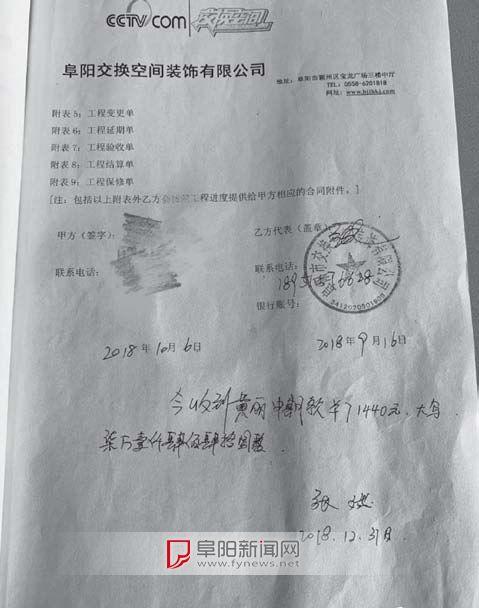 CCTV.com 交换空间
阜阳交换空间装饰有限公司
地址:阜阳市颍州区宝龙广场三楼中厅
TEL:0558-6201818
附表5:工程变更单
附表6:工程延期单
附表7:工程验收单
附表8:工程结算单
附表9:工程保修单
[注:包括以上附表外乙方会按照工程进度提供给甲方相应的合同附件。]
甲方(签字):
乙方代表(盖章)
联系电话:
联系电话:
银行账号:
2018年10月6日
2018年9月16日
今收到黄丽中期款 71440元,大写
柒万壹仟肆佰肆拾圆整.
2018.12.31日
阜阳新闻网
www.fynews.net